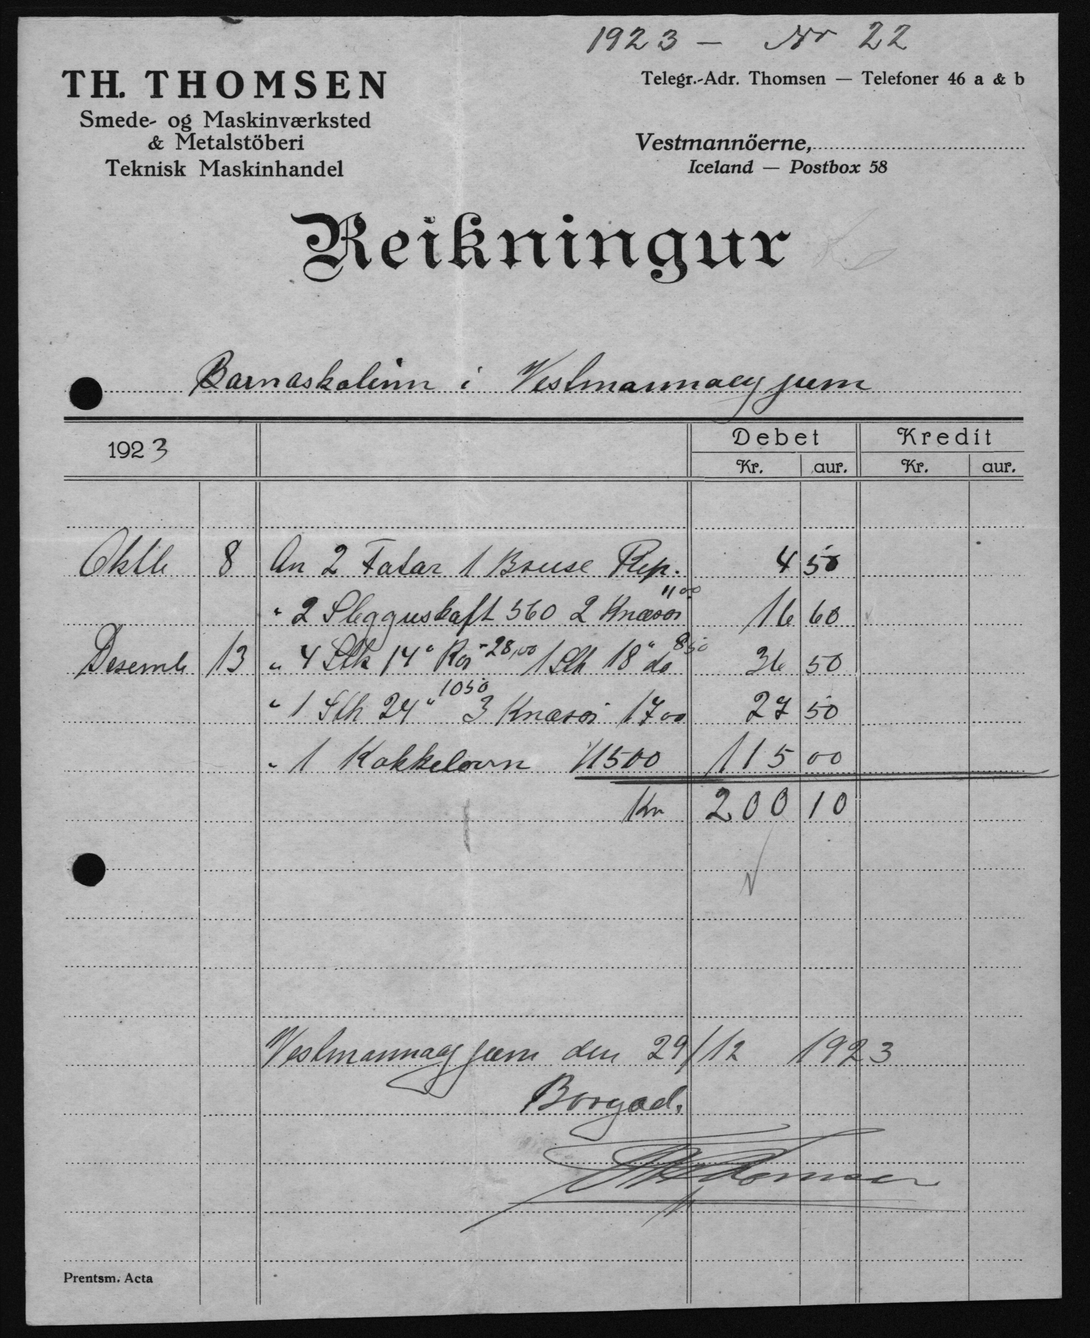 1923 – Nr 22
TH. THOMSEN
Smede- og Maskinværksted
& Metalstöberi
Teknisk Maskinhandel
Telegr.-Adr. Thomsen — Telefoner 46 a & b
Vestmannöerne,
Iceland — Postbox 58
Reikningur
Barnaskolinn i Vestmannaeyjum
1923 Debet Kredit
Kr. aur. Kr. aur.
Oktb 8 An 2 Fatar 1 Bruse Rep. 4 50
" 2 Slegguskaft 560 2 Knærör 11 00 16 60
Desemb 13 " 4 Stk 14" Rör 28,00 1 Stk 18" do 8 50 36 50
" 1 Stk 24" 10 50 3 Knærör 17 00 27 50
" 1 Kakkelovn 11500 115 00
Kr 200 10
Vestmannaeyjum den 29/12 1923
Borgad.
Th Thomsen
Prentsm. Acta